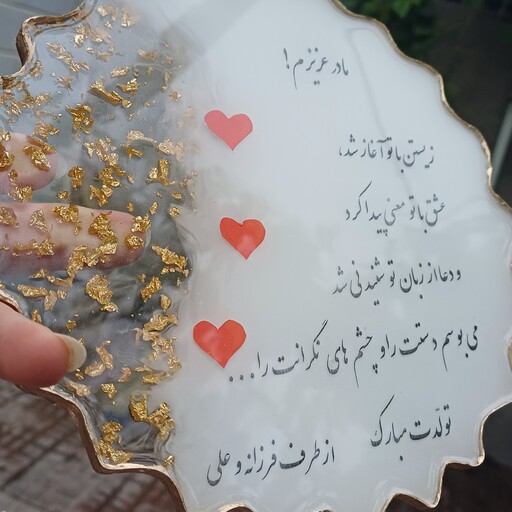 مادر عزیزم!
زیستن با تو آغاز شد،
عشق با تو معنی پیدا کرد
و دعا از زبان تو شنیدنی شد
می بوسم دستت را و چشم های نگرانت را...
تولدت مبارک
از طرف فرزانه و علی